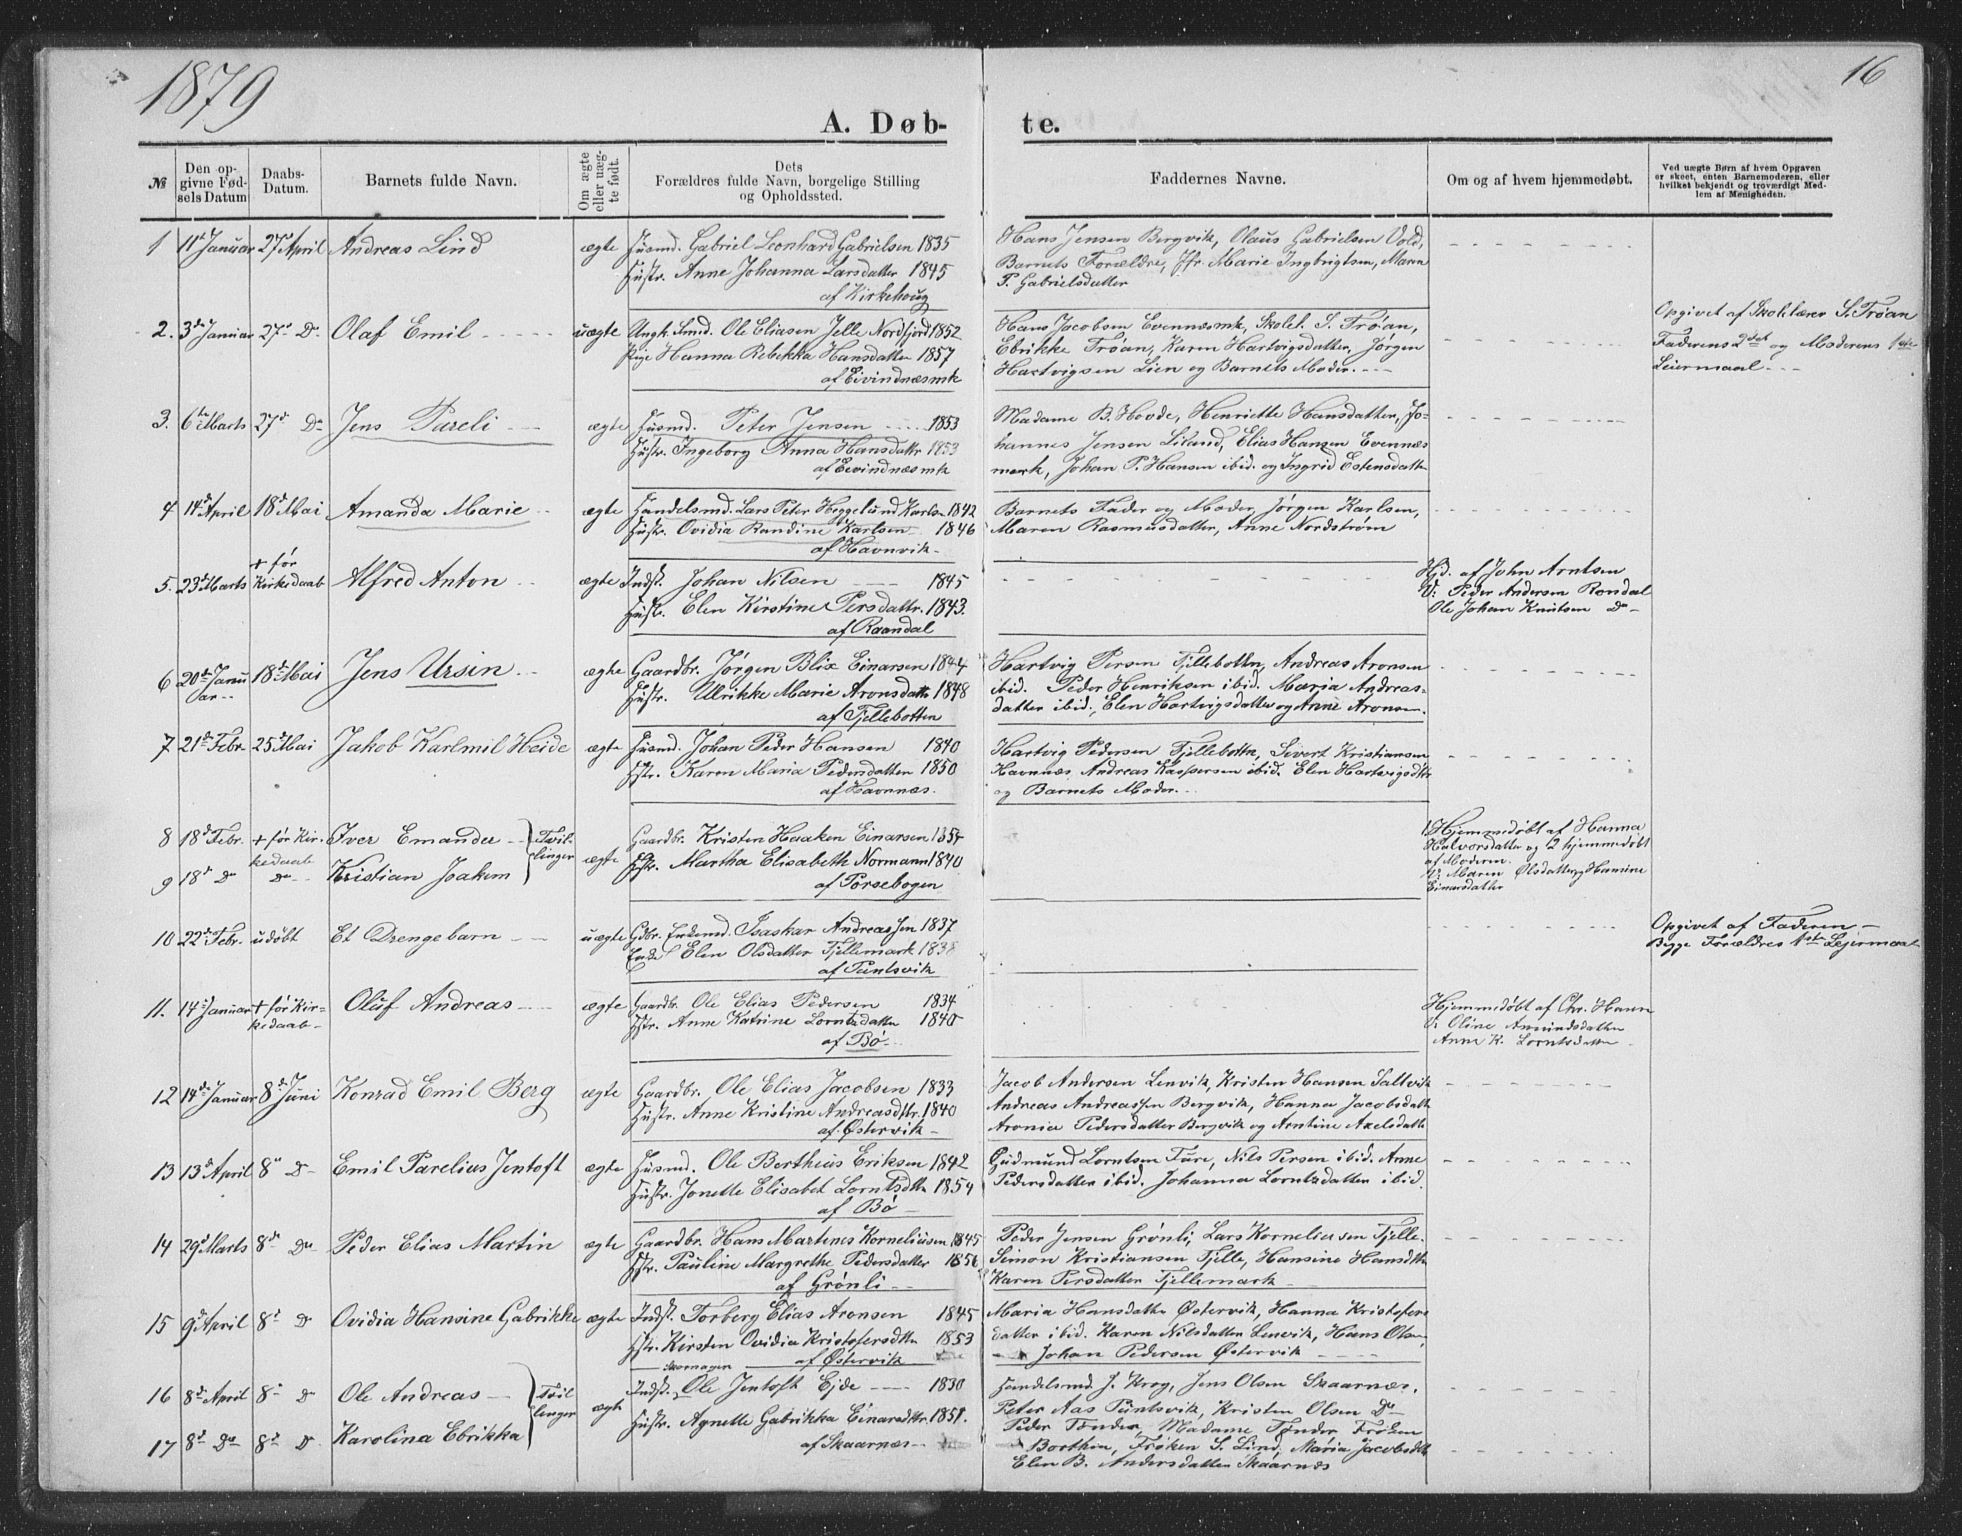 1879
16
A. Døb-
te.
№
Den op-
givne Fød-
sels Datum
Daabs-
Datum.
Barnets fulde Navn.
Om ægte
eller uæg-
te født.
Dets
Forældres fulde Navn, borgelige Stilling
og Opholdssted.
Faddernes Navne.
Om og af hvem hjemmedøbt.
Ved uægte Børn af hvem Opgaven
er skeet, enten Barnemoderen, eller
hvilket bekjendt og troværdigt Med-
lem af Menigheden.
1 11te Januar 27de April Andreas Lind ægte Husmd. Gabriel Leonhard Gabrielsen 1835
Hustr. Anne Johanna Larsdatter 1845
af Kirkehoug
Hans Jensen Bergvik, Olaus Gabrielsen Vold,
Barnets Forældre, Jfr. Marie Ingbrigtsen, Maren
P. Gabrielsdatter
2. 3de Januar 27de Do Olaf Emil uægte Ungk. Smd. Ole Eliasen Jelle Nordfjord 1852
Pige Hanna Rebekka Hansdatter 1857
af Eivindnæsmk
Hans Jacobsen Evennæsmk, Skolel. S. Trøan,
Ebrikke Trøan, Karen Hartvigsdatter, Jørgen
Hartvigsen Lien og Barnets Moder.
Opgivet af Skolelærer S. Trøan
Faderens 2det og Moderens 1ste
Leiermaal
3. 6te Marts 27de Do Jens Pareli ægte Husmd. Peter Jensen 1853
Hustr. Ingeborg Anna Hansdattr 1853
af Eivindnæsmk
Madame B. Hovde, Henriette Hansdatter, Jo-
hannes Jensen Liland, Elias Hansen Evennæs
mark, Johan P. Hansen ibid. og Ingrid Estensdattr
4 14de April 18de Mai Amanda Marie ægte Handelsmd. Lars Peter Heggelund Karlsen 1842
Hustr. Ovidia Randine Karlsen 1846
af Havnvik
Barnets Fader og Moder, Jørgen Karlsen,
Maren Rasmusdatter, Anne Nordstrøm
5. 23de Marts + før
Kirkedaab Alfred Anton ægte Indst. Johan Nilsen 1845
Hustr. Elen Kirstine Persdattr. 1843.
af Raandal
Hjd. af John Arntsen
V: Peder Andersen Rondal
Ole Johan Knutsen Do
6 20de Janu
ar 18de Mai Jens Ursin ægte Gaardbr. Jørgen Blix Einarsen 1844
Hustr. Ulrikke Marie Aronsdattr 1848
af Fjellebotten
Hartvig Persen Fjellebotten, Andreas Aronsen
ibid. Peder Henriksen ibid. Maria Andreas-
datter ibid., Elen Hartvigsdatter og Anne Aronsen.
7 21de Febr. 25de Mai Jakob Karlmil Heide ægte Husmd. Johan Peder Hansen 1840
Hstr. Karen Maria Pedersdatter 1850
af Havnnæs.
Hartvig Pedersen Fjellebottn, Sivert Kristiansen
Havnnæs, Andreas Kaspersen ibid. Elen Hartvigsdttr
og Barnets Moder.
8 18de Febr. + før Kir-
kedaab Iver Emander
9 18de Do Do Kristian Joakem
Tvil-
linger
ægte Gaardbr. Kristen Haaken Einarsen
Hstr. Martha Elisabeth Normann 1840
af Forsebogen
1, Hjemmedøbt af Hanna
Halvorsdatter og 2 hjemmedøbt
af Moderen.
V: Maren Olsdatter og Hansine
Einarsdatter
10 22de Febr. udøbt Et Drengebarn uægte Gdbr. Enkemd. Isaskar Andreassen 1837
Enke Elen Olsdatter Fjellemark 1838
af Puntsvik
Opgivet af Faderen
Begge Forældres 1ste Lejermaal
11. 14de Januar + før Kir-
kedaab Oluf Andreas ægte Gaardbr. Ole Elias Pedersen 1834
Hstr. Anne Katrine Lorntsdatter 1840
af Bø
Hjemmedøbt af Chr. Hansen
V: Oline Amundsdatter
Anne K. Lorntsdatter
12 14de Januar 8de Juni Konrad Emil Berg ægte Gaardbr. Ole Elias Jacobsen 1833
Hustr. Anne Kristine Andreasdttr. 1840
af Østervik
Jacob Andersen Lenvik, Kristen Hansen Saltvik
Andreas Andreassen Bergvik, Hanna Jacobsdattr
Aronia Pedersdatter Bergvik og Arntine Axelsdattr
13 13de April 8de Do Emil Parelius Jentoft ægte Husmd. Ole Bertheus Eriksen 1842
Hustr. Jonette Elisabet Lorntsdttr 1854
af Bø
Gudmund Lorntsen Fure, Nils Persen ibid. Anne
Pedersdatter ibid. Johanna Lorntsdatter ibid.
14 29de Marts 8de Do Peder Elias Martin ægte Gaardbr. Hans Martines Korneliusen 1845
Hstr. Pauline Margrethe Pedersdatter 1856
af Grønli
Peder Jensen Grønli, Lars Korneliussen Fjelle.
Simon Kristiansen Fjelle, Hansine Hansdttr
Karen Persdatter Fjellemark
15 9de April 8de Do Ovidia Hansine Gabrikke ægte Indst. Torberg Elias Aronsen 1845
Hstr. Kirsten Ovidia Kristofersdttr 1853
af Østervik
Maria Hansdattr Østervik, Hanna Kristofers
datter ibid. Karen Nilsdatter Lenvik, Hans Olsen,
Johan Pedersen Østervik
16 8de April 8de Do Ole Andreas
17 8de Do 8de Do Karolina Ebrikka
Tvil
linger
ægte Indst. Ole Jentoft Ejde 1830
Hustr. Agnette Gabrikka Einarsdttr. 1851.
af Skaarnæs
Handelsmd. J. Krog, Jens Olsen Skaarnæs,
Peter Aas Puntsvik, Kristen Olsen Do
Peder Tønder, Madame Tønder Frøken
Borthia, Frøken S. Lind, Maria Jacobsdttr
Elen B. Andersdatter Skaarnæs